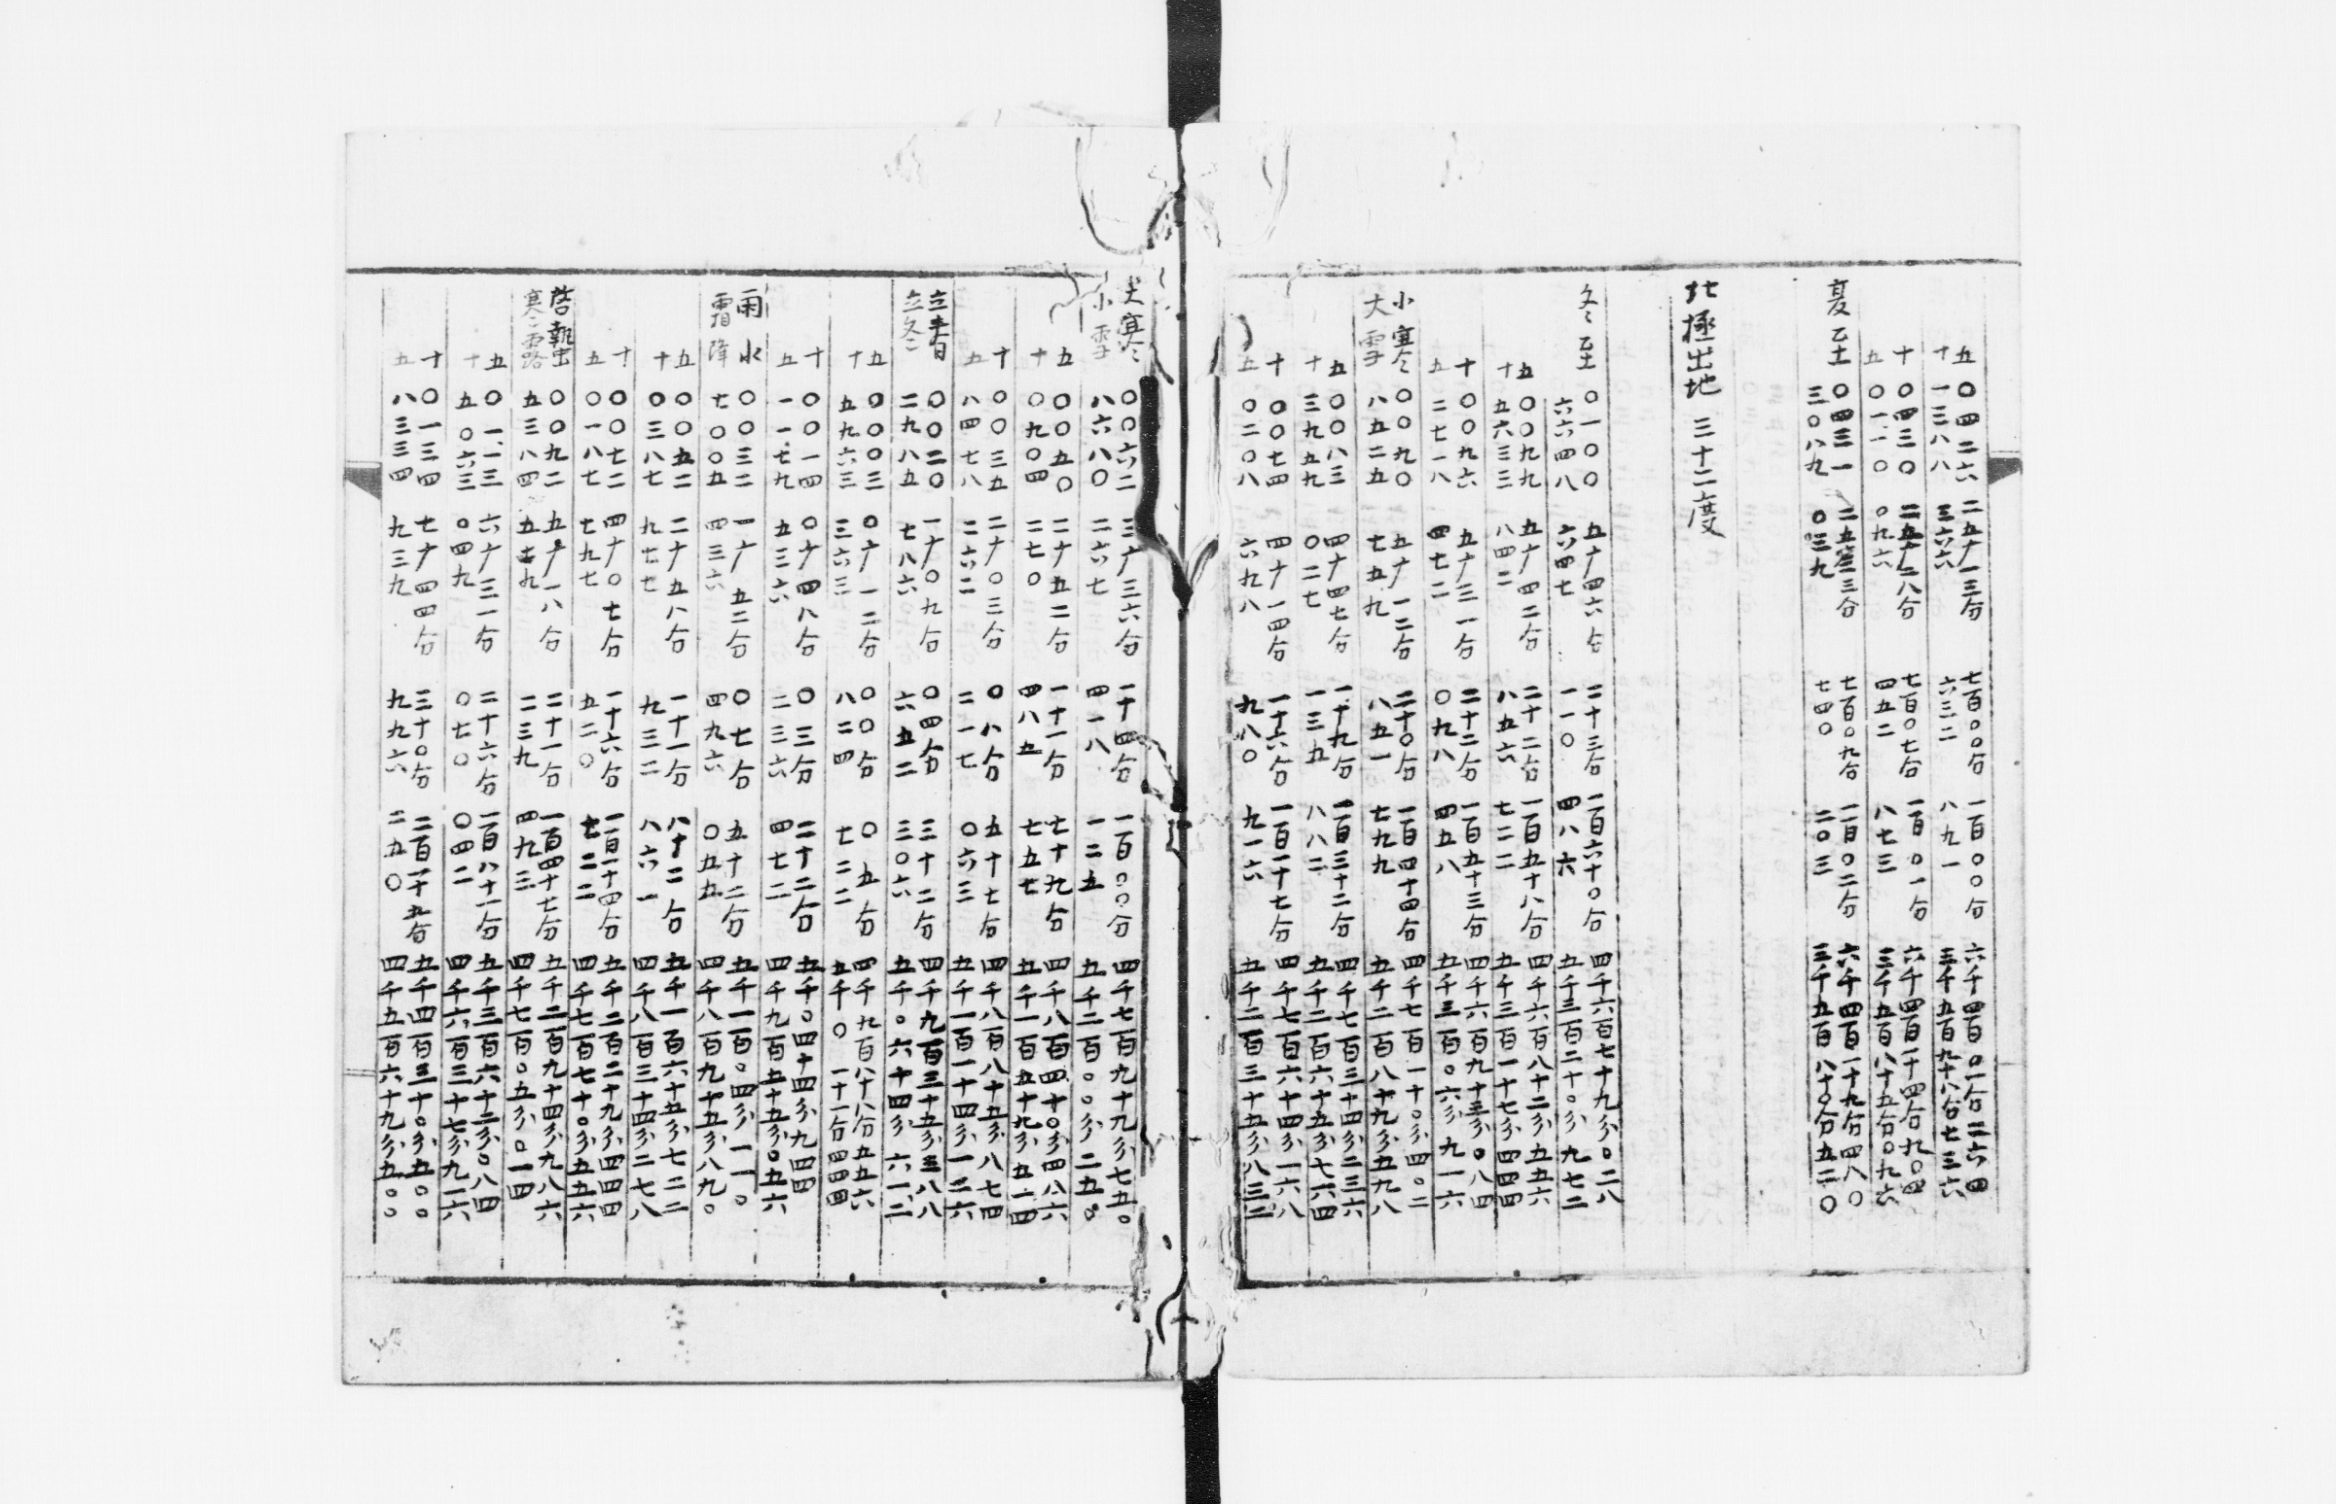 五 〇四二六 二五广一三分 七百〇〇分 一百〇〇分 六千四百〇一分二六四
十 一三八八 三六六 六三二 八九一 三千五百九十八分七三六
十 〇四三〇 二五广二八分 七百〇七分 一百〇一分 六千四百一十四分九〇四
五 〇一一〇 〇九六 四五二 八七三 三千五百八十五分〇九六
夏至 〇四三一 二五广三三分 七百〇九分 一百〇二分 六千四百一十九分四八〇
三〇八九 〇三九 七四〇 二〇三 三千五百八十〇分五二〇
北極出地 三十二度
冬至 〇一〇〇 五广四六分 二十三分 一百六十〇分 四千六百七十九分〇二八
六六四八 六四七 一一〇 四八六 五千三百二十〇分九七二
五 〇〇九九 五广四二分 二十二分 一百五十八分 四千六百八十二分五五六
十 五六三三 八四二 八五六 七二二 五千三百一十七分四四四
十 〇〇九六 五广三一分 二十二分 一百五十三分 四千六百九十三分〇八四
五 二七一八 四七二 〇九八 四五八 五千三百〇六分九一六
小寒 〇〇九〇 五广一二分 二十〇分 一百四十四分 四千七百一十〇分四〇二
大雪 八五二五 七五九 八五一 七九九 五千二百八十九分五九八
五 〇〇八三 四广四七分 一十九分 一百三十二分 四千七百三十四分二三六
十 三九五九 〇二七 一三五 八八二 五千二百六十五分七六四
十 〇〇七四 四广一四分 一十六分 一百一十七分 四千七百六十四分一六八
五 〇二〇八 六九八 九八〇 九一六 五千二百三十五分八三二
大寒 〇〇六二 三广三六分 一十四分 一百〇〇分 四千七百九十九分七五〇
小雪 八六八〇 二六七 四一八 一二五 五千二百〇〇分二五〇
五 〇〇五〇 二广五二分 一十一分 七十九分 四千八百四十〇分四八六
十 〇九〇四 二七〇 四八五 七五七 五千一百五十九分五一四
十 〇〇三五 二广〇三分 〇八分 五十七分 四千八百八十五分八七四
五 八四七八 二六二 二一七 〇六三 五千一百一十四分一二六
立春 〇〇二〇 一广〇九分 〇四分 三十二分 四千九百三十五分三八八
立冬 二九八五 七八六 六五二 三〇六 五千〇六十四分六一二
五 〇〇〇三 〇广一二分 〇〇分 〇五分 四千九百八十八分五五六
十 五九六三 三六三 八二四 七二二 五千〇一十一分四四四
十 〇〇一四 〇广四八分 〇三分 二十二分 五千〇四十四分九四四
五 一一七九 五三六 二三六 四七二 四千九百五十五分〇五六
雨水 〇〇三二 一广五二分 〇七分 五十二分 五千一百〇四分一一〇
霜降 七〇〇五 四三六 四九六 〇五五 四千八百九十五分八九〇
五 〇〇五二 二广五八分 一十一分 八十二分 五千一百六十五分七二二
十 〇三八七 九七七 九三二 八六一 四千八百三十四分二七八
十 〇〇七二 四广〇七分 一十六分 一百一十四分 五千二百二十九分四四四
五 〇一八七 七九七 五二〇 七二二 四千七百七十〇分五五六
啓蟄 〇〇九二 五广一八分 二十一分 一百四十七分 五千二百九十四分九八六
寒露 五三八四 五七九 二三九 四九三 四千七百〇五分〇一四
五 〇一一三 六广三一分 二十六分 一百八十一分 五千三百六十二分〇八四
十 五〇六三 〇四九 〇七〇 〇四二 四千六百三十七分九一六
十 〇一三四 七广四四分 三十〇分 二百一十五分 五千四百三十〇分五〇〇
五 八三三四 九三九 九九六 二五〇 四千五百六十九分五〇〇